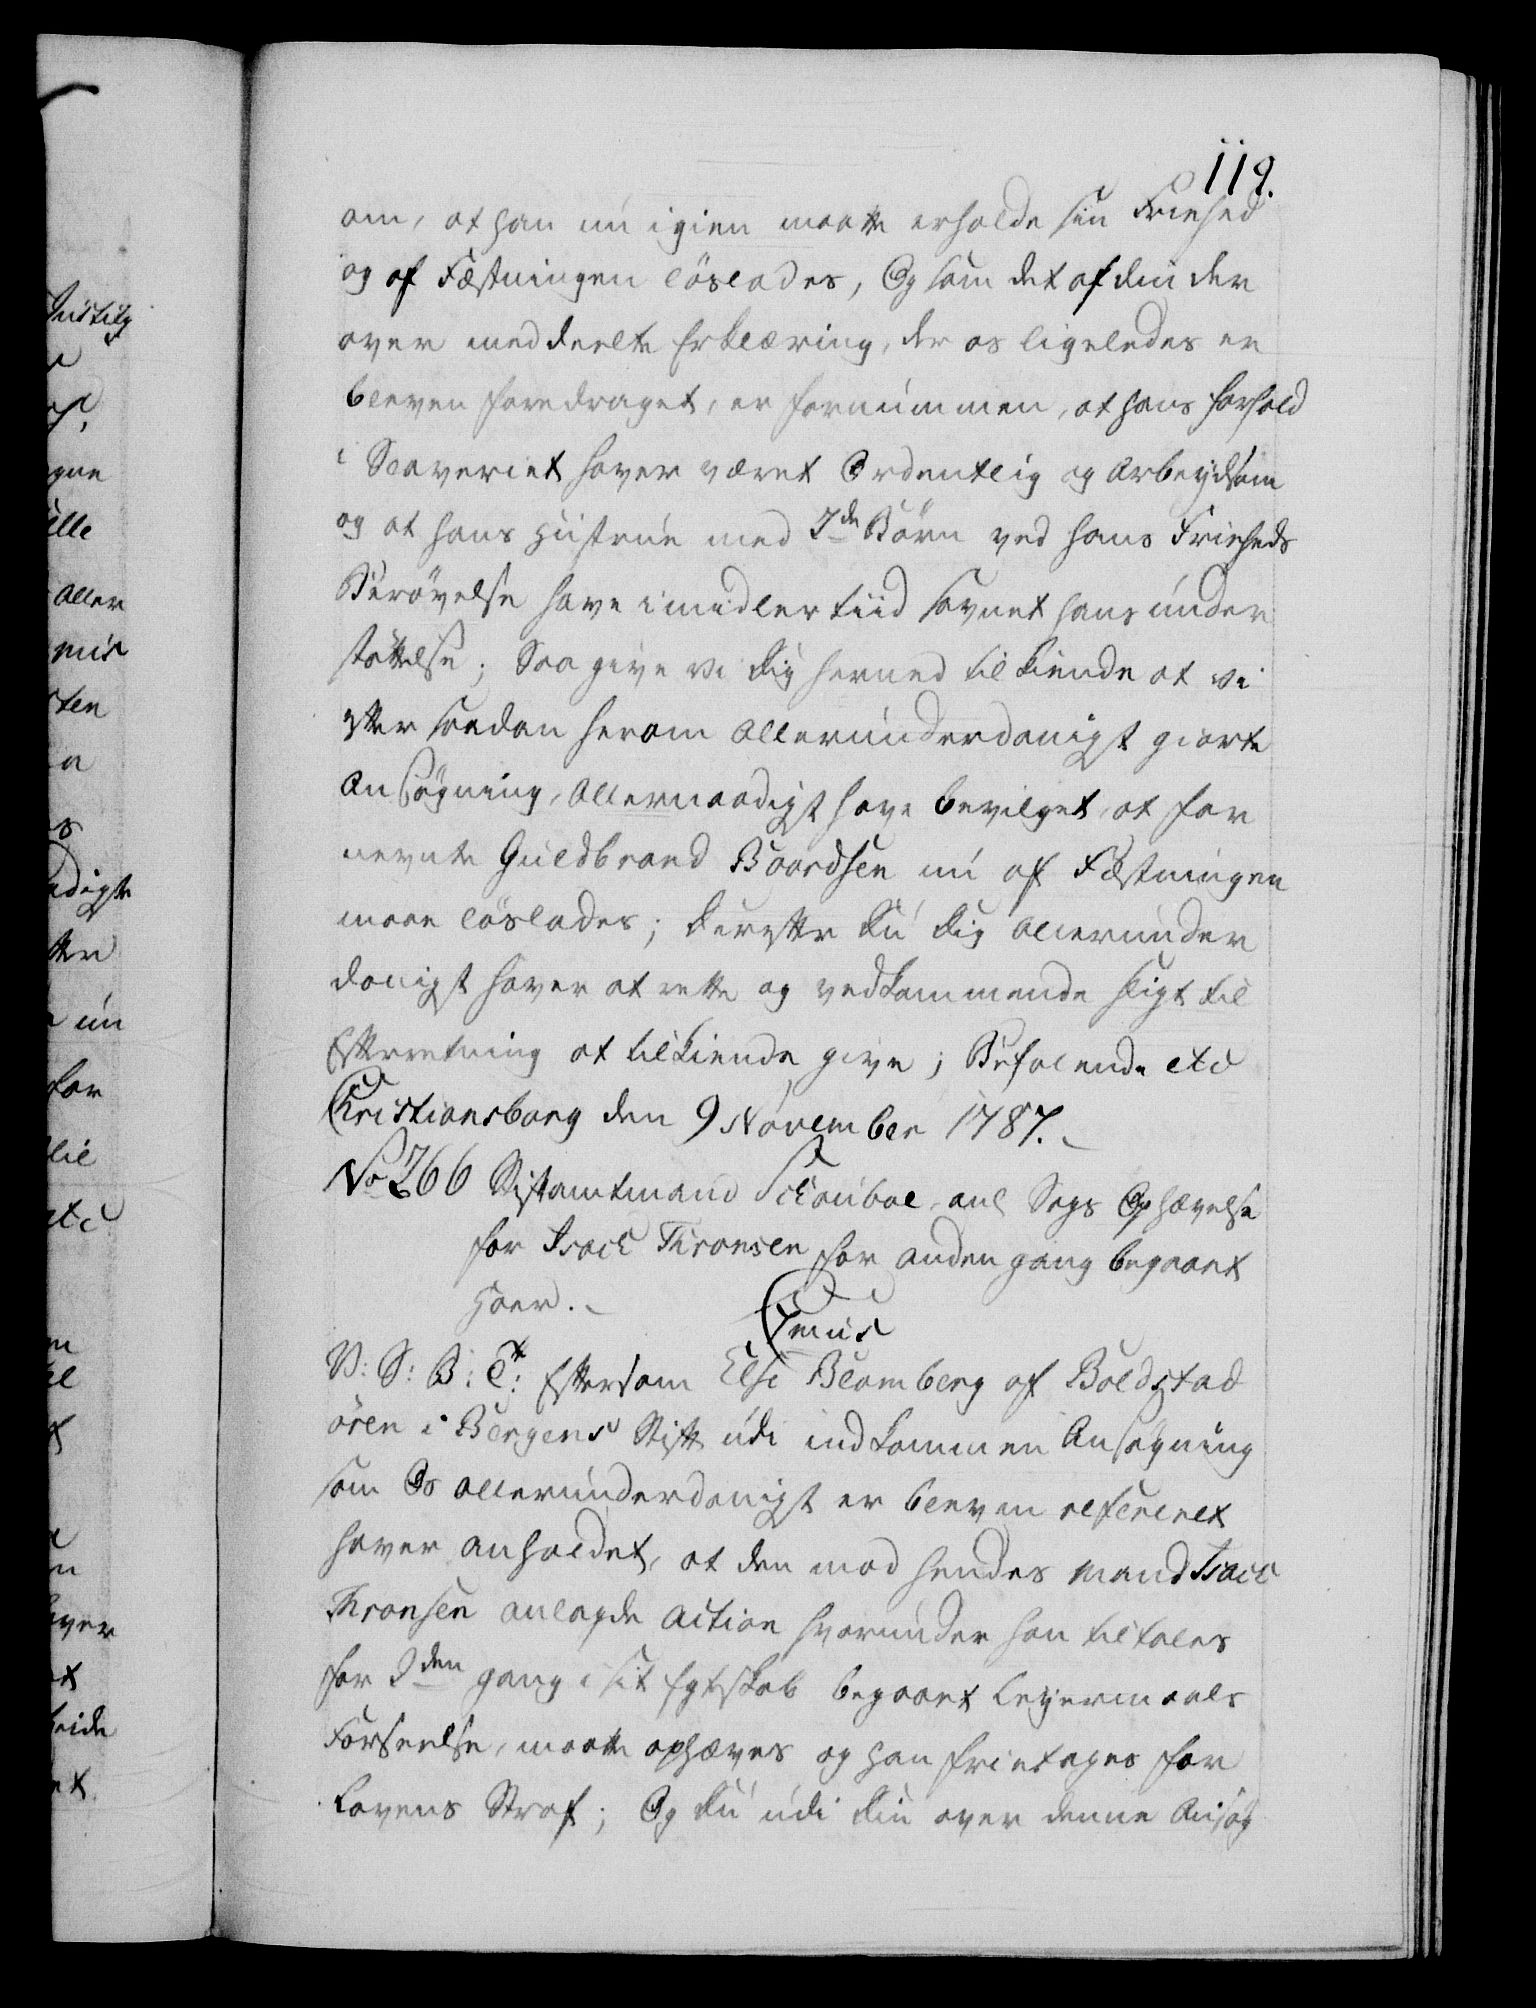 119.
om, at han nu igien maatte erholde sin Friehed
og af Fæstningen löslades, Og som det af din der
over meddeelte Erklæring, der os ligeledes er
bleven foredraget, er fornummen, at hans Forhold
i Slaveriet haver været Ordentlig og Arbeydsom
og at hans Hustrue med 7de Börn ved hans Friheds
Berövelse have imidlertiid savnet hans under
stöttelse; Saa give Vi Dig hermed tilkiende at Vi
efter saadan herom Allerunderdanigst giorte
Ansögning, Allernaadigst have bevilget, at for
nevnte Guldbrand Baardsen nu af Fæstningen
maae löslades; Derefter Du Dig Allerunder
danigst haver at rette og vedkommende sligt til
Efterretning at tilkiende give; Befalende etc
Christiansborg den 9 November 1787.
No 266 Stiftamtmand Schouboe, anl Sags Ophævelse
for Isach Thronsen for anden gang begaaet
Hoer.
Cmus
V: S: B: T: Eftersom Else Blomberg af Boldstad
ören i Bergens Stift udi indkommen Ansögning
som Os allerunderdanigst er bleven refereret
haver anholdet, at den mod hendes Mand Isach
Thronsen anlagde Action hvorunder han tiltales
for 2den gang i sit Egteskab begaaet Leyermaals
Forseelse, maatte ophæves og han frietages for
Lovens Straf; Og Du udi Din over denne Ansög